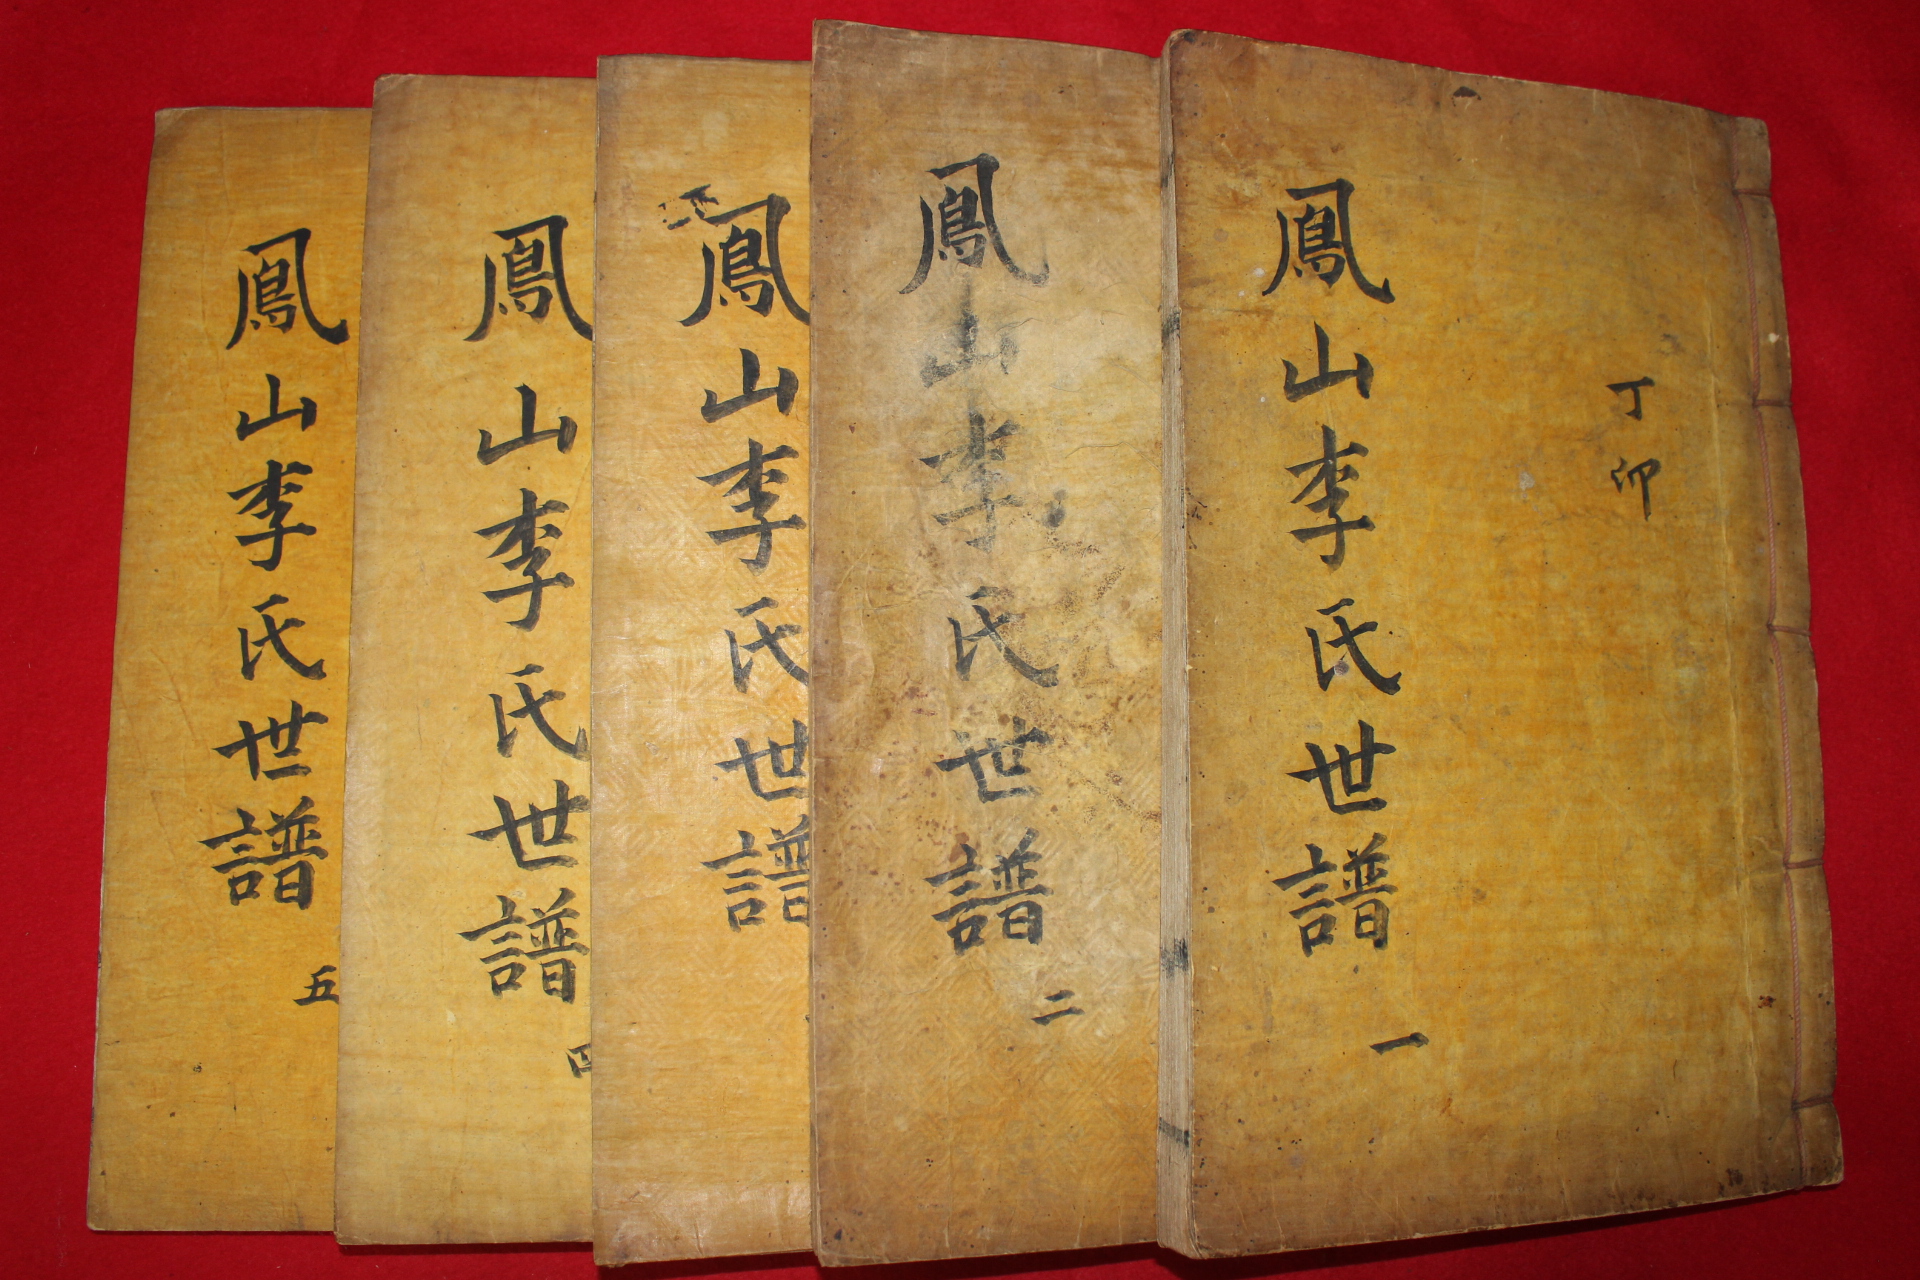 丁卯
鳳山李氏世譜
一
鳳山李氏世譜
二
鳳山李氏世譜
鳳山李氏世譜
四
鳳山李氏世譜
五